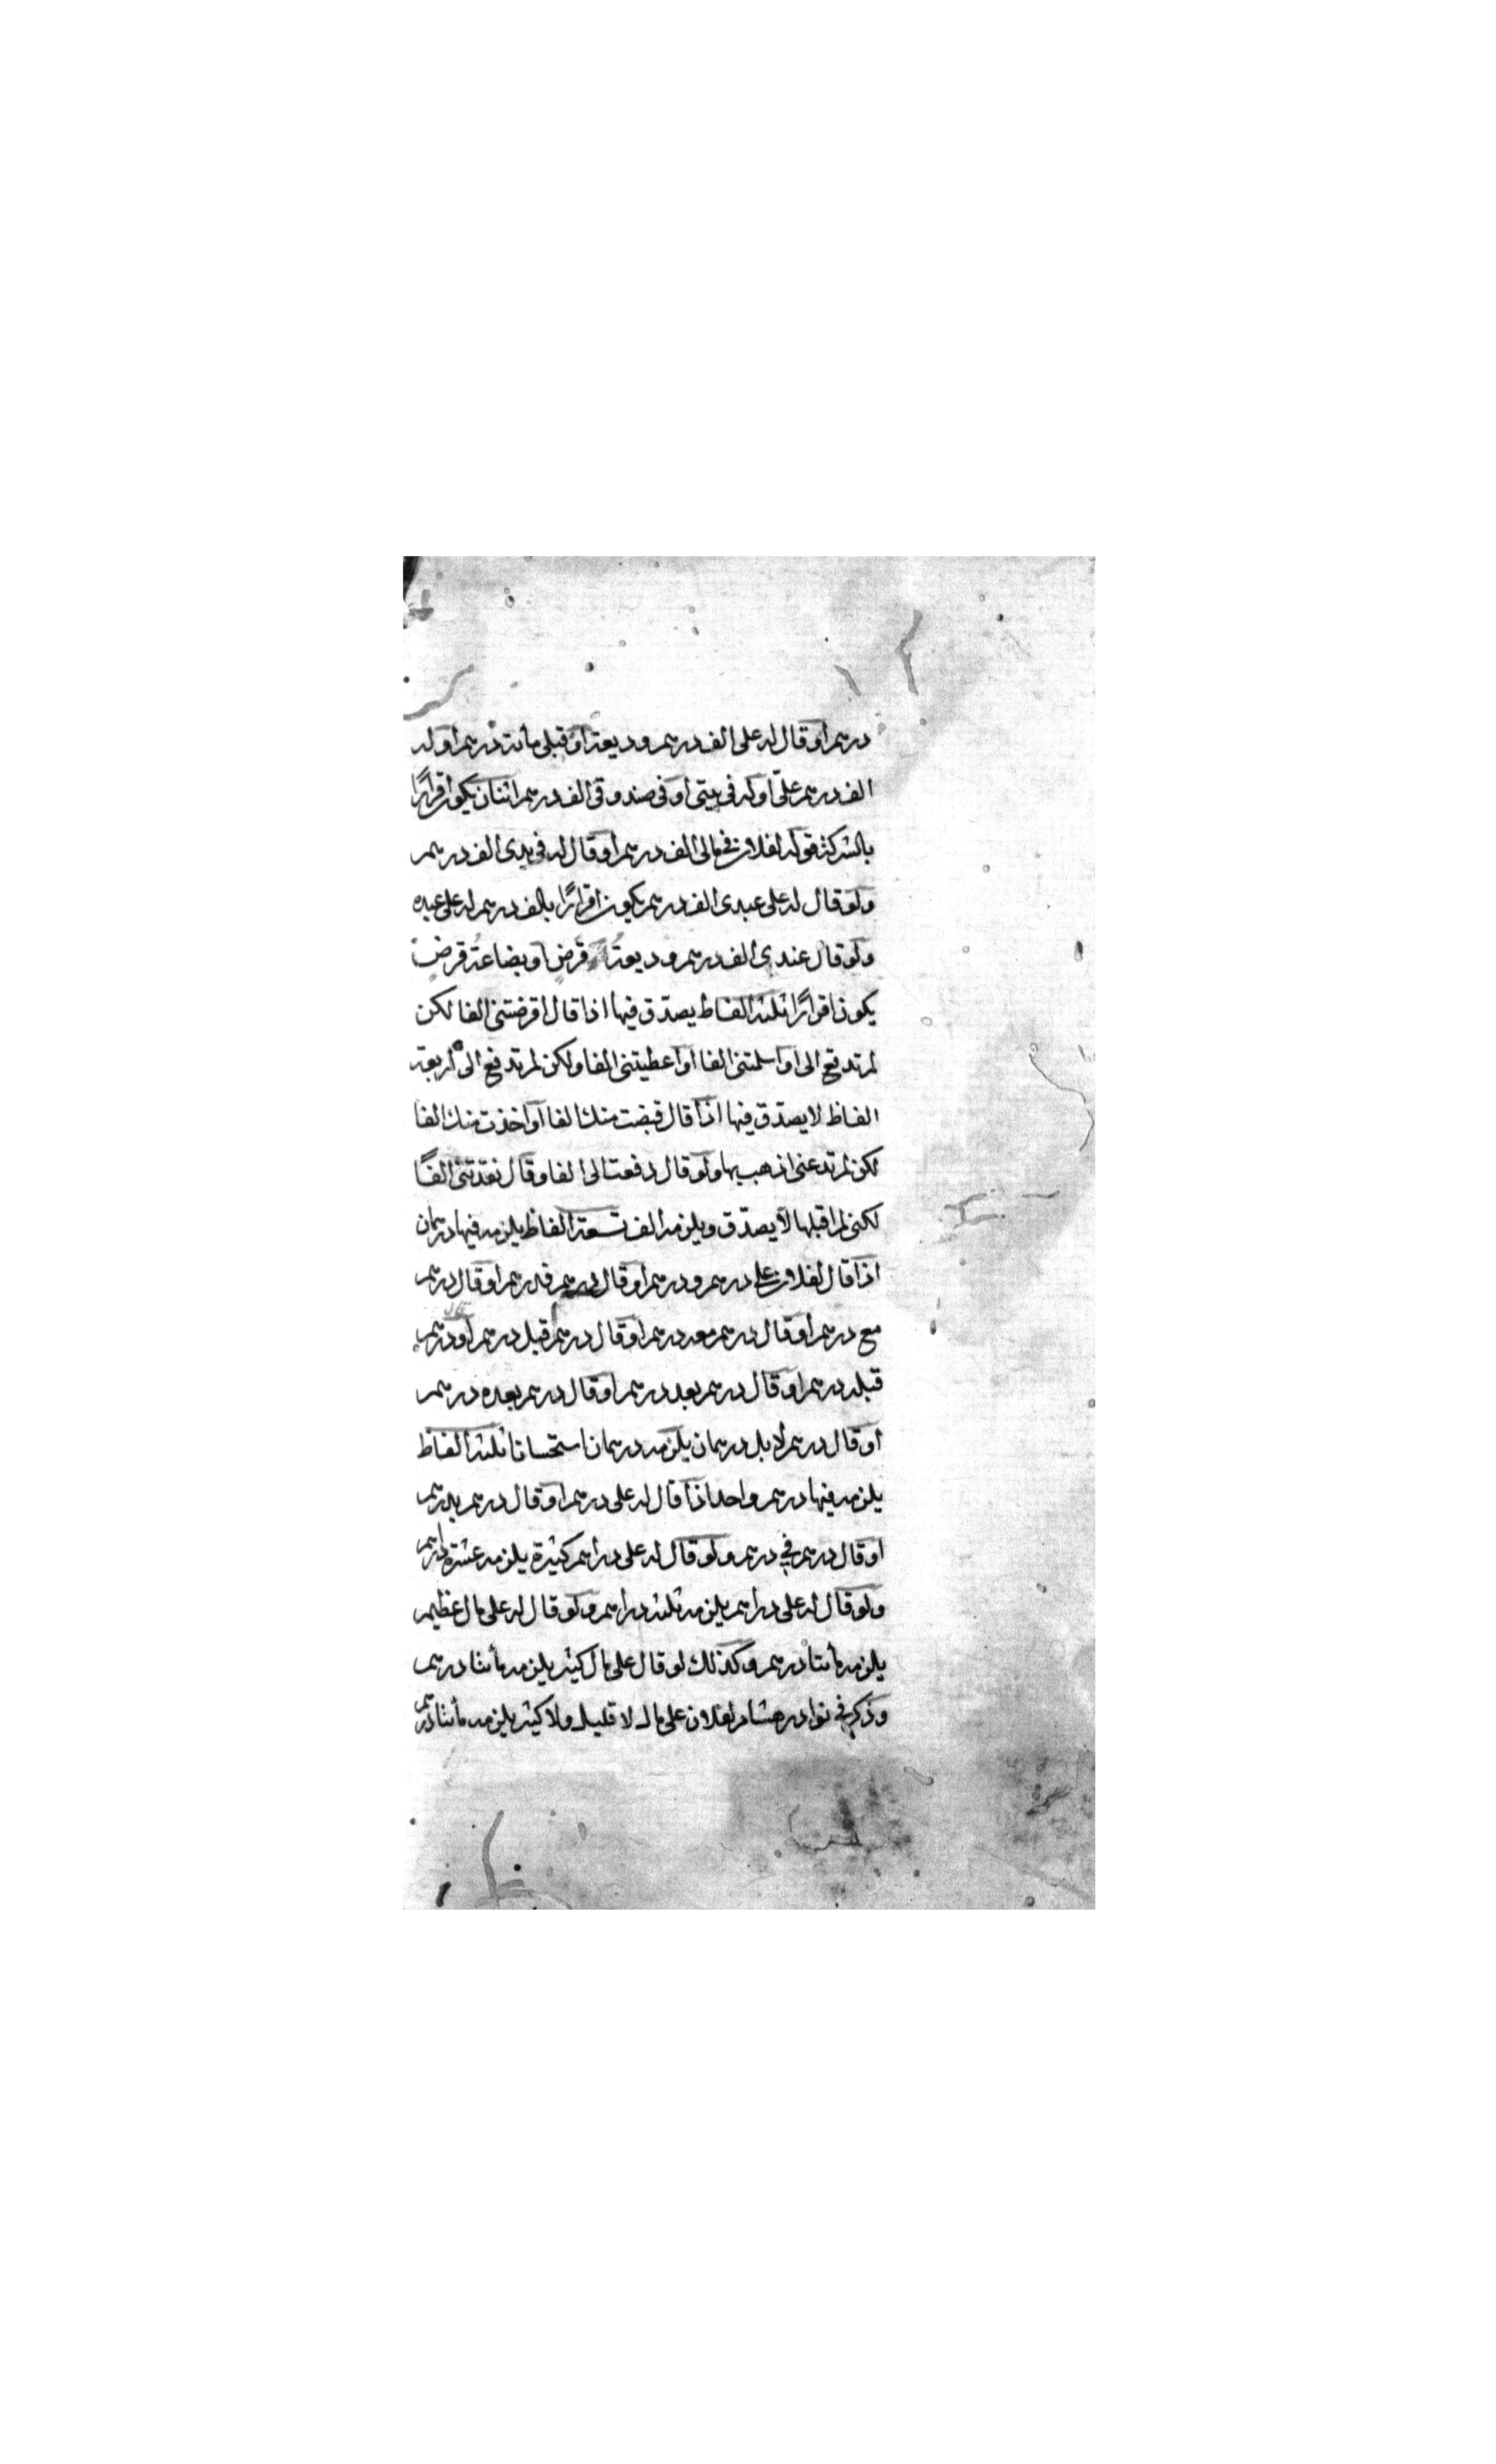 درهم او قال له على الف درهم وديعة او قبلى مائة درهم او له
الف درهم علىّ او له فى بيتى او فى صندوقى الف درهم اثنان يكون اقرارًا
بالشركة قوله لفلان فى مالى الف درهم او قال له فى يدى الف درهم
ولو قال له على عبدى الف درهم يكون اقرارًا بالف درهم له على عبده
ولو قال عندى الف درهم وديعةُ قرضٍ او بضاعةُ قرضٍ
يكون اقرارًا ثلثة الفاظ يصدّق فيها اذا قال اقرضتنى الفا لكن
لم تدفع الى او اسلمتنى الفا او اعطيتنى الفا ولكن لم تدفع الى اربعة
الفاظ لا يصدّق فيها اذا قال قبضت منك الفا او اخذت منك الفا
لكن لم تدعنى اذهب بها ولو قال دفعت الى الفا وقال نقدتنى الفًا
لكنى لم اقبلها لا يصدّق ويلزمه الف تسعة الفاظ يلزمه فيها درهمان
اذا قال لفلان على درهم ودرهم او قال درهم فدرهم او قال درهم
مع درهم او قال درهم معه درهم او قال درهم قبل درهم او درهم
قبله درهم او قال درهم بعد درهم او قال درهم بعده درهم
او قال درهم لا بل درهمان يلزمه درهمان استحسانا ثلثة الفاظ
يلزمه فيها درهم واحد اذا قال له على درهم او قال درهم بدرهم
او قال درهم فى درهم ولو قال له على دراهم كثيرة يلزمه عشرة دراهم
ولو قال له على دراهم يلزمه ثلثة دراهم ولو قال له على مال عظيم
يلزمه مائتا درهم وكذلك لو قال على مال كثير يلزمه مائتا درهم
وذكر فى نوادر هشام لفلان على مال لا قليل ولا كثير يلزمه مائتا درهم